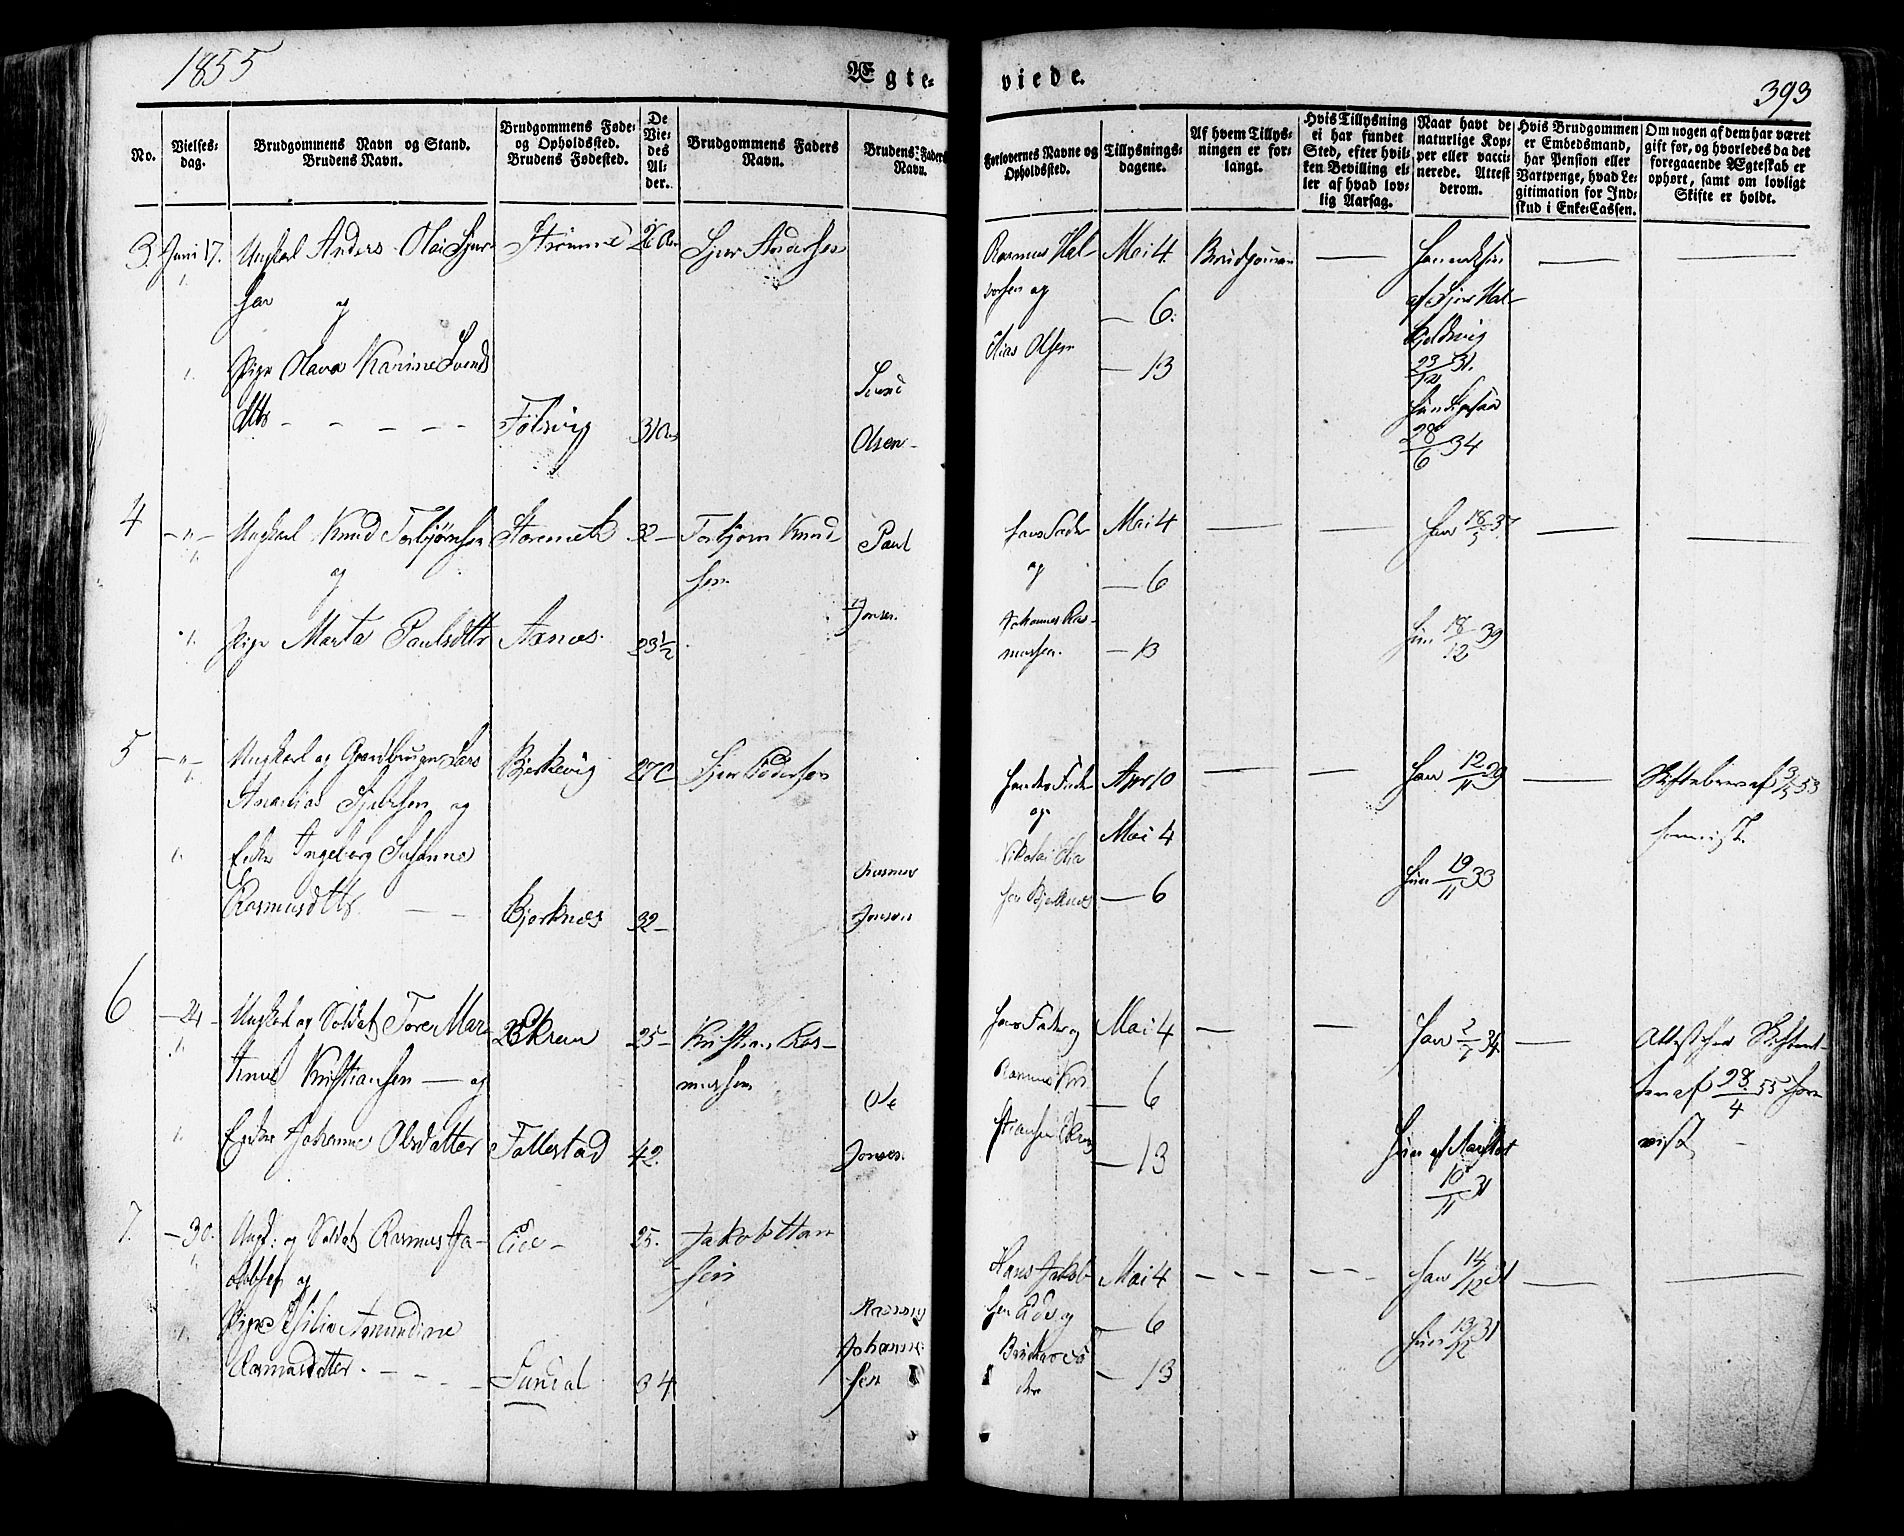 1855
Ægte-
viede.
393
No.
Vielses-
dag.
Brudgommens Navn og Stand.
Brudens Navn.
Brudgommens Føde-
og Opholdssted.
Brudens Fødested.
De
Vie-
des
Al-
der.
Brudgommens Faders
Navn.
Brudens Faders
Navn.
Forlovernes Navne og
Opholdssted.
Tillysnings-
dagene.
Af hvem Tillys-
ningen er for-
langt.
Hvis Tillysning
ei har fundet
Sted, efter hvil-
ken Bevilling el-
ler af hvad lov-
lig Aarsag.
Naar havt de
naturlige Kop-
per eller vacci-
nerede. Attest
derom.
Hvis Brudgommen
er Embedsmand,
har Pension eller
Vartpenge, hvad Le-
gitimation for Ind-
skud i Enke-Cassen.
Om nogen af dem har været
gift før, og hvorledes da det
foregaaende Ægteskab er
ophørt, samt om lovligt
Skifte er holdt.
3. Juni 17. Ungkarl Anders Olai Sjur-
sen og
Pige Olava Karine Svends
dtr - - - - -
Strømme
Følsvig
26 Aar
31 Aar
Sjur Andersen
Svend
Olsen
Rasmus Hal-
vorsen og
Elias Olsen
Mai 4.
— 6.
— 13
Brudgommen
—
23/12 31.
28/6 34
4 -"- Ungkarl Knud Torbjørnsen
og
Pige Marta Paulsdtr
Axnes.
32 -
23 1/2
Torbjørn Knud
sen.
Paul
Jonsen.
hans Fader
og
Johannes Ras-
mussen.
Mai 4
— 6
— 13
han 18/5 37
hun 18/12 39
5 -"- Ungkarl og Gaardbruger Lars
Ananias Sjursen og
Enke Ingeborg Susanne
Rasmusdtr
Bjerkevig
Bjerknes
27
32 -
Sjur
Rasmus
Jonsen
hendes Fader
og
Nikolai Elia
sen Bjerknes
Apr 10
Mai 4
— 6
han 12/11 29
hun 19/11 33
Skiftebrev af 3/5 53
forevist.
6 -24- Ungkarl og Soldat Tore Mar-
tinus Kristiansen — og
Enke Johanne Olsdatter
Ekren
Tallestad
25 -
42.
Kristian Ras-
mussen
Ole
Jonsen.
hans Fader og
Rasmus Kri
stiansen Ekren
Mai 4
— 6
— 13
han 2/7 34.
hun af
10/11 31
Attest fra Skifteret-
ten af 28/4 55 fore-
vist -
7. -30. Ungk: og Soldat Rasmus Ja-
kobsen og
Pige Amundine
Rasmusdatter. - - - -
Eide -
Sundal
25.
34
Jakob Han
sen
Rasmus
Johanne-
sen
Hans Jakob-
sen Eide og
Mai 4
— 6
— 13
han 14/12 31
hun 13/12 31